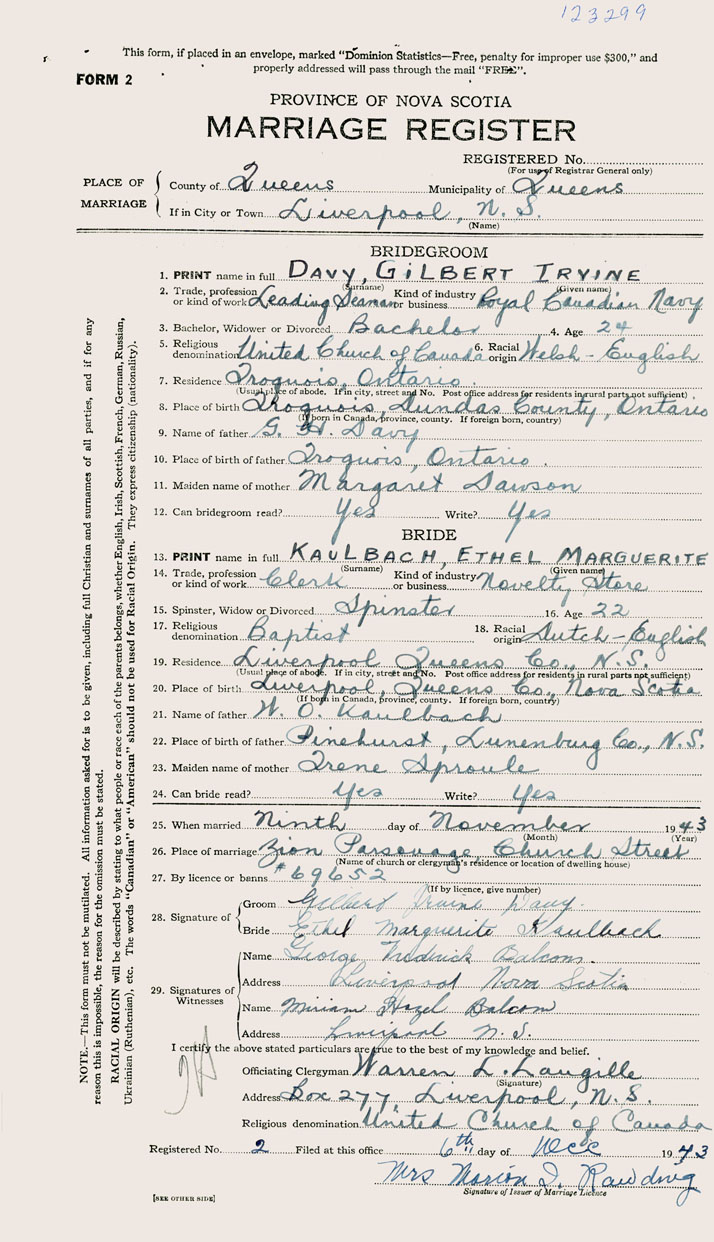 123299
This form, if placed in an envelope, marked "Dominion Statistics—Free, penalty for improper use $300," and
properly addressed will pass through the mail "FREE".
FORM 2
PROVINCE OF NOVA SCOTIA
MARRIAGE REGISTER
REGISTERED No.
(For use of Registrar General only)
PLACE OF MARRIAGE
County of Queens Municipality of Queens
If in City or Town Liverpool, N. S.
(Name)
BRIDEGROOM
1. PRINT name in full DAVY, GILBERT IRVINE
(Surname) (Given name)
2. Trade, profession or kind of work Leading Seaman Kind of industry or business Royal Canadian Navy
3. Bachelor, Widower or Divorced Bachelor 4. Age 24
5. Religious denomination United Church of Canada 6. Racial origin Welsh - English
7. Residence Iroquois, Ontario
(Usual place of abode. If in city, street and No. Post office address for residents in rural parts not sufficient)
8. Place of birth Iroquois, Dundas County, Ontario
(If born in Canada, province, county. If foreign born, country)
9. Name of father G. H. Davy
10. Place of birth of father Iroquois, Ontario.
11. Maiden name of mother Margaret Dawson
12. Can bridegroom read? Yes Write? Yes
BRIDE
13. PRINT name in full KAULBACH, ETHEL MARGUERITE
(Surname) (Given name)
14. Trade, profession or kind of work Clerk Kind of industry or business Novelty Store
15. Spinster, Widow or Divorced Spinster 16. Age 22
17. Religious denomination Baptist 18. Racial origin Dutch - English
19. Residence Liverpool Queens Co., N.S.
(Usual place of abode. If in city, street and No. Post office address for residents in rural parts not sufficient)
20. Place of birth Liverpool, Queens Co., Nova Scotia
(If born in Canada, province, county. If foreign born, country)
21. Name of father W. O. Kaulbach
22. Place of birth of father Pinehurst, Lunenburg Co., N.S.
23. Maiden name of mother Irene Sproule
24. Can bride read? Yes Write? Yes
25. When married Ninth day of November 1943
(Month) (Year)
26. Place of marriage Zion Parsonage, Church Street
(Name of church or clergyman's residence or location of dwelling house)
27. By licence or banns #69652
(If by licence, give number)
28. Signature of
Groom Gilbert Irvine Davy.
Bride Ethel Marguerite Kaulbach
29. Signatures of Witnesses
Name George Fredrick Balcom.
Address Liverpool Nova Scotia
Name Miriam Hazel Balcom
Address Liverpool N. S.
I certify the above stated particulars are true to the best of my knowledge and belief.
Officiating Clergyman Warren L. Langille
(Signature)
Address Box 277, Liverpool, N.S.
Religious denomination United Church of Canada
Registered No. 2 Filed at this office 6th day of Dec 1943
Mrs Marion I. Rawding
Signature of Issuer of Marriage Licence
[SEE OTHER SIDE]
NOTE.—This form must not be mutilated. All information asked for is to be given, including full Christian and surnames of all parties, and if for any
reason this is impossible, the reason for the omission must be stated.
RACIAL ORIGIN will be described by stating to what people or race each of the parents belongs, whether English, Irish, Scottish, French, German, Russian,
Ukrainian (Ruthenian), etc. The words "Canadian" or "American" should not be used for Racial Origin. They express citizenship (nationality).